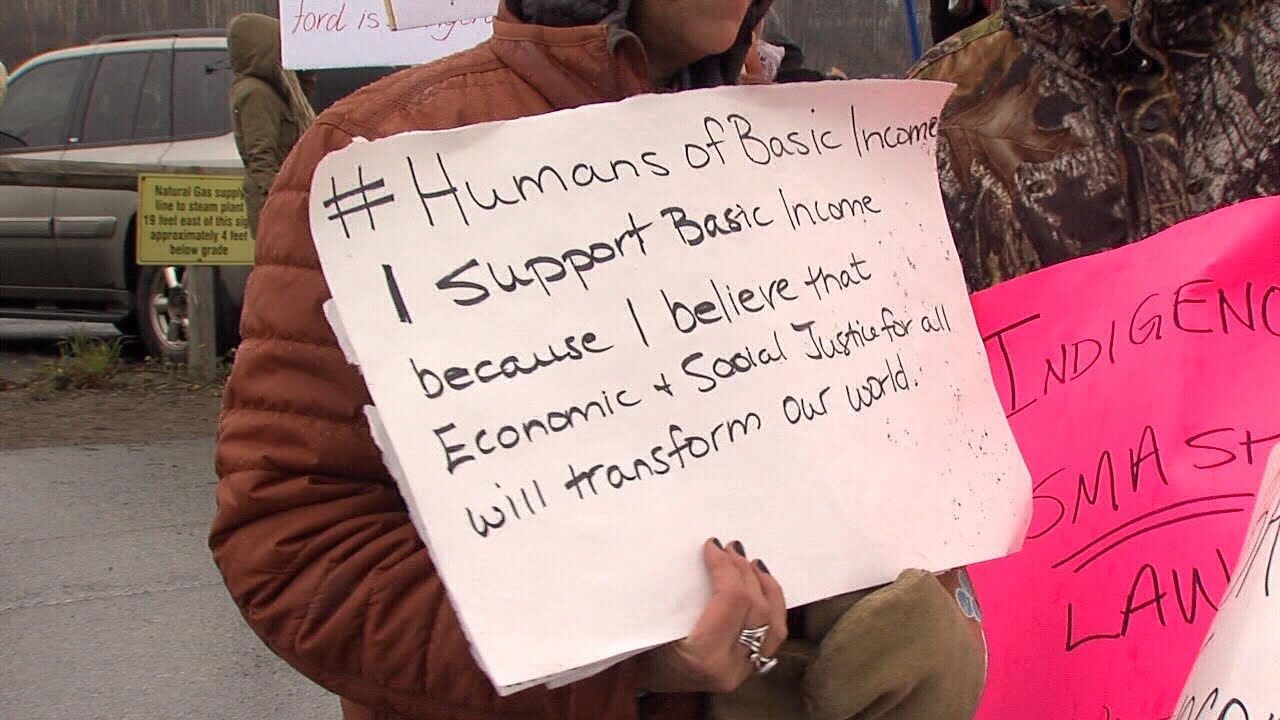 ford is
# Humans of Basic Income
I support Basic Income
because I believe that
Economic + Social Justice for all
will transform our world.
Natural Gas supply
line to steam plant
19 feet east of this sig
approximately 4 feet
below grade
INDIGENO
SMASH
LAW